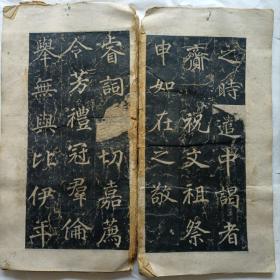 之時遣中謁者
齎祝文祖祭
申如在之敬
睿詞切嘉薦
令芳禮冠羣倫
舉無與比伊年